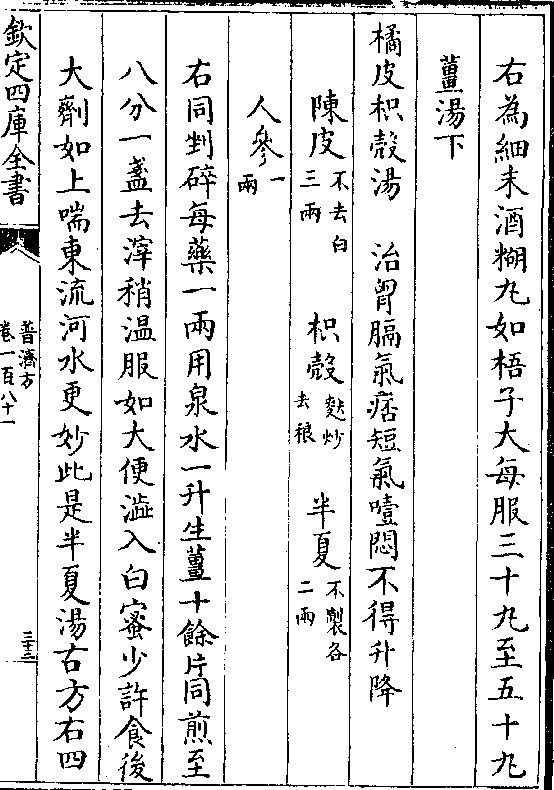 右為細末酒糊丸如梧子大每服三十丸至五十丸
薑湯下
橘皮枳殼湯　治胷膈氣痞短氣噎悶不得升降
陳皮不去白三兩　枳殼麩炒去穰　半夏不製各二兩
人參一兩
右同剉碎每藥一兩用泉水一升生薑十餘片同煎至
八分一盞去滓稍温服如大便澁入白蜜少許食後
大劑如上喘東流河水更妙此是半夏湯古方右四
欽定四庫全書
普濟方
卷一百八十一
三十三